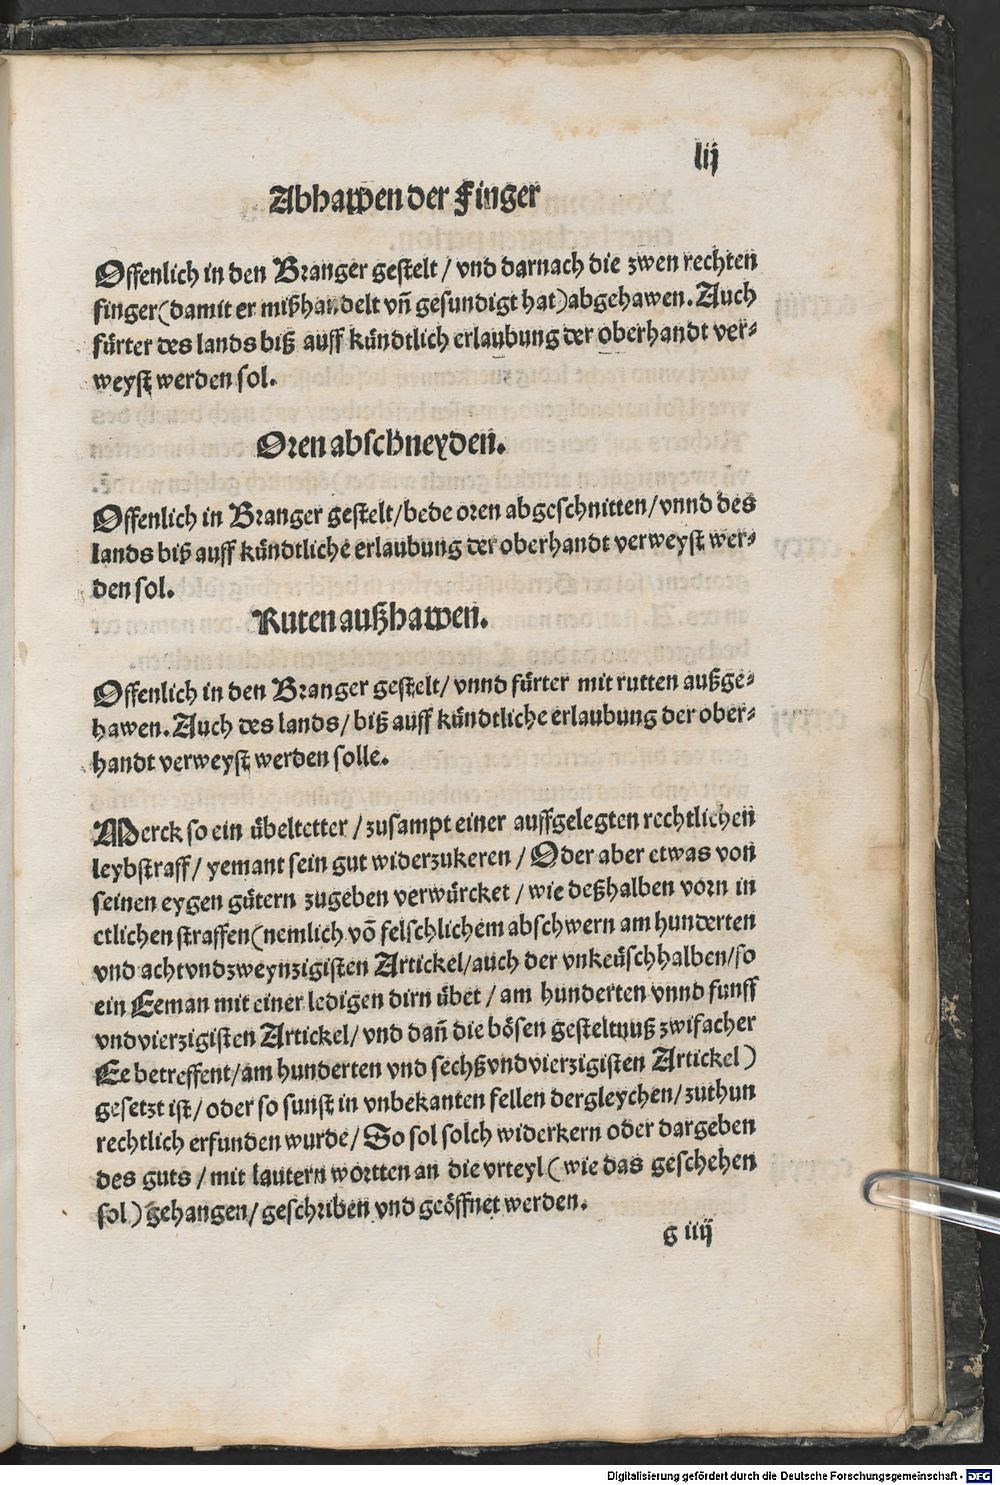 lij
Abhawen der Finger
Offenlich in den Branger gestelt / vnd darnach die zwen rechten
finger (damit er mißhandelt vn̄ gesundigt hat) abgehawen. Auch
fürter des lands biß auff kündtlich erlaubung der oberhandt ver⸗
weyst werden sol.
Oren abschneyden.
Offenlich in Branger gestelt / bede oren abgeschnitten / vnnd des
lands biß auff kündtliche erlaubung der oberhandt verweyst wer⸗
den sol.
Ruten außhawen.
Offenlich in den Branger gestelt / vnnd fürter mit rutten außge⸗
hawen. Auch des lands / biß auff kündtliche erlaubung der ober⸗
handt verweyst werden solle.
Merck so ein übeltetter / zusampt einer auffgelegten rechtlichen
leybstraff / yemant sein gut widerzukeren / Oder aber etwas von
seinen eygen gütern zugeben verwürcket / wie deßhalben vorn in
etlichen straffen (nemlich vō felschlichem abschwern am hunderten
vnd achtvndzweynzigisten Artickel / auch der vnkeüschhalben / so
ein Eeman mit einer ledigen dirn übet / am hunderten vnnd funff
vndvierzigisten Artickel / vnd dan̄ die bösen gesteltnuß zwifacher
Ee betreffent / am hunderten vnd sechßvndvierzigisten Artickel)
gesetzt ist / oder so sunst in vnbekanten fellen dergleychen / zuthun
rechtlich erfunden wurde / So sol solch widerkern oder dargeben
des guts / mit lautern wortten an die vrteyl (wie das geschehen
sol) gehangen / geschriben vnd geöffnet werden.
g iiij
Digitalisierung gefördert durch die Deutsche Forschungsgemeinschaft - DFG